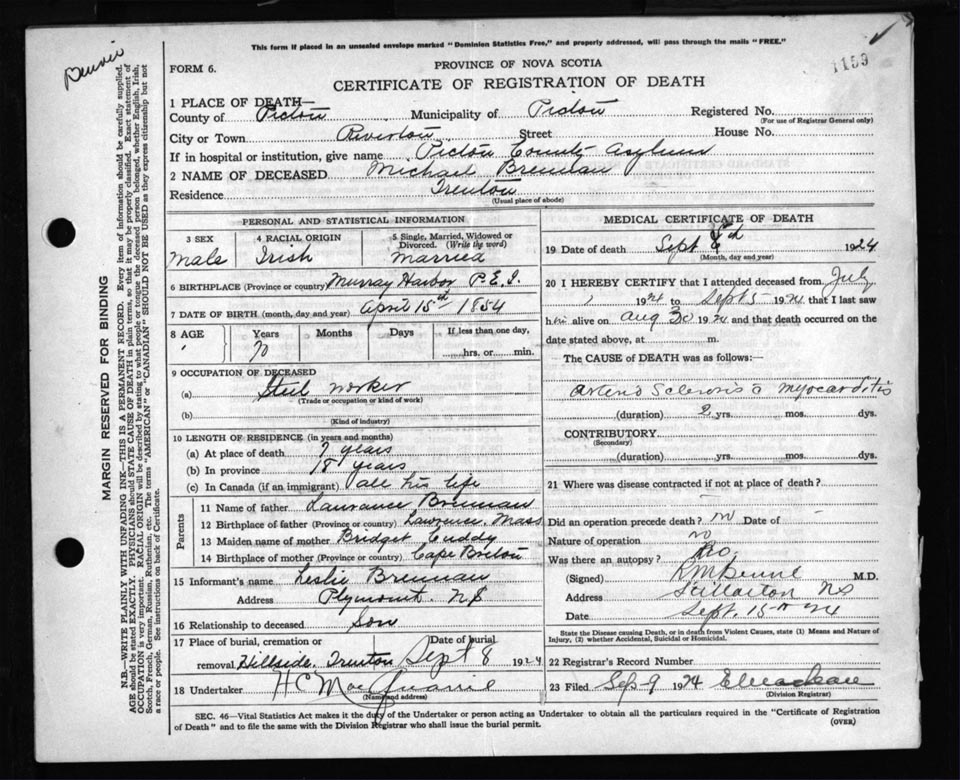 This form if placed in an unsealed envelope marked "Dominion Statistics Free," and properly addressed, will pass through the mails "FREE."
1159
FORM 6.
PROVINCE OF NOVA SCOTIA
CERTIFICATE OF REGISTRATION OF DEATH
1 PLACE OF DEATH—
County of Pictou Municipality of Pictou Registered No.
(For use of Registrar General only)
City or Town Riverton Street House No.
If in hospital or institution, give name Pictou County Asylum
2 NAME OF DECEASED Michael Brennan
Residence Trenton
(Usual place of abode)
MARGIN RESERVED FOR BINDING
N.B.—WRITE PLAINLY WITH UNFADING INK—THIS IS A PERMANENT RECORD. Every item of information should be carefully supplied.
AGE should be stated EXACTLY. PHYSICIANS should STATE CAUSE OF DEATH in plain terms, so that it may be properly classified. Exact statement of
OCCUPATION is very important. RACIAL ORIGIN will be described by stating to what people or tongue the deceased person belonged, whether English, Irish,
Scotch, French, German, Russian, Ruthenian, etc. The terms "AMERICAN" or "CANADIAN" SHOULD NOT BE USED as they express citizenship but not
a race or people. See instructions on back of Certificate.
PERSONAL AND STATISTICAL INFORMATION
3 SEX
Male
4 RACIAL ORIGIN
Irish
5 Single, Married, Widowed or
Divorced. (Write the word)
Married
6 BIRTHPLACE (Province or country) Murray Harbor P.E.I.
7 DATE OF BIRTH (month, day and year) April 15th 1854
8 AGE Years Months Days If less than one day,
70 hrs. or min.
9 OCCUPATION OF DECEASED
(a) Steel worker
(Trade or occupation or kind of work)
(b)
(Kind of industry)
10 LENGTH OF RESIDENCE (in years and months)
(a) At place of death years
(b) In province 18 years
(c) In Canada (if an immigrant) all his life
Parents
11 Name of father Laurance Brennan
12 Birthplace of father (Province or country) Lawrence, Mass
13 Maiden name of mother Bridget Cuddy
14 Birthplace of mother (Province or country) Cape Breton
15 Informant's name Leslie Brennan
Address Plymouth NS
16 Relationship to deceased Son
17 Place of burial, cremation or Date of burial
removal Hillside, Trenton Sept 8 1924
18 Undertaker H C MacQuarrie
(Name and address)
MEDICAL CERTIFICATE OF DEATH
19 Date of death Sept 1924
(Month, day and year)
20 I HEREBY CERTIFY that I attended deceased from July
1924 to Sept 5 1924 that I last saw
him alive on Aug 30 1924 and that death occurred on the
date stated above, at m.
The CAUSE OF DEATH was as follows:
Arterio Sclerosis myocarditis
(duration) 2 yrs. mos. dys.
CONTRIBUTORY
(Secondary)
(duration) yrs. mos. dys.
21 Where was disease contracted if not at place of death?
Did an operation precede death? no Date of
Nature of operation no
Was there an autopsy? No.
(Signed) M.D.
Address Stellarton NS
Date Sept. 15th 24
State the Disease causing Death, or in death from Violent Causes, state (1) Means and Nature of
Injury, (2) whether Accidental, Suicidal or Homicidal.
22 Registrar's Record Number
23 Filed Sep 9 1924
(Division Registrar)
SEC. 46—Vital Statistics Act makes it the duty of the Undertaker or person acting as Undertaker to obtain all the particulars required in the "Certificate of Registration
of Death" and to file the same with the Division Registrar who shall issue the burial permit.
(OVER)